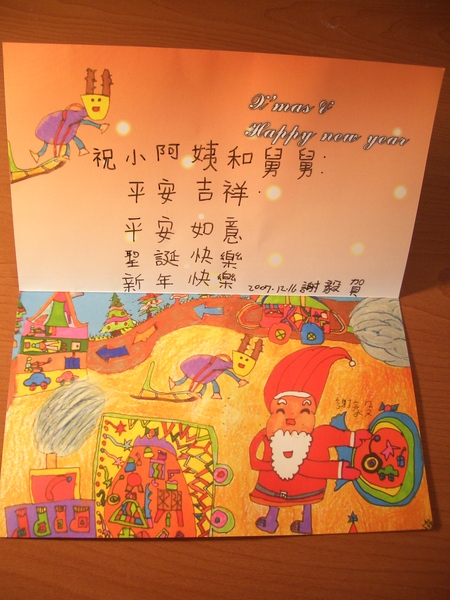 X'mas &
Happy new year
祝小阿姨和舅舅:
平安吉祥.
平安如意
聖誕快樂
新年快樂
2007.12.16 謝毅賀